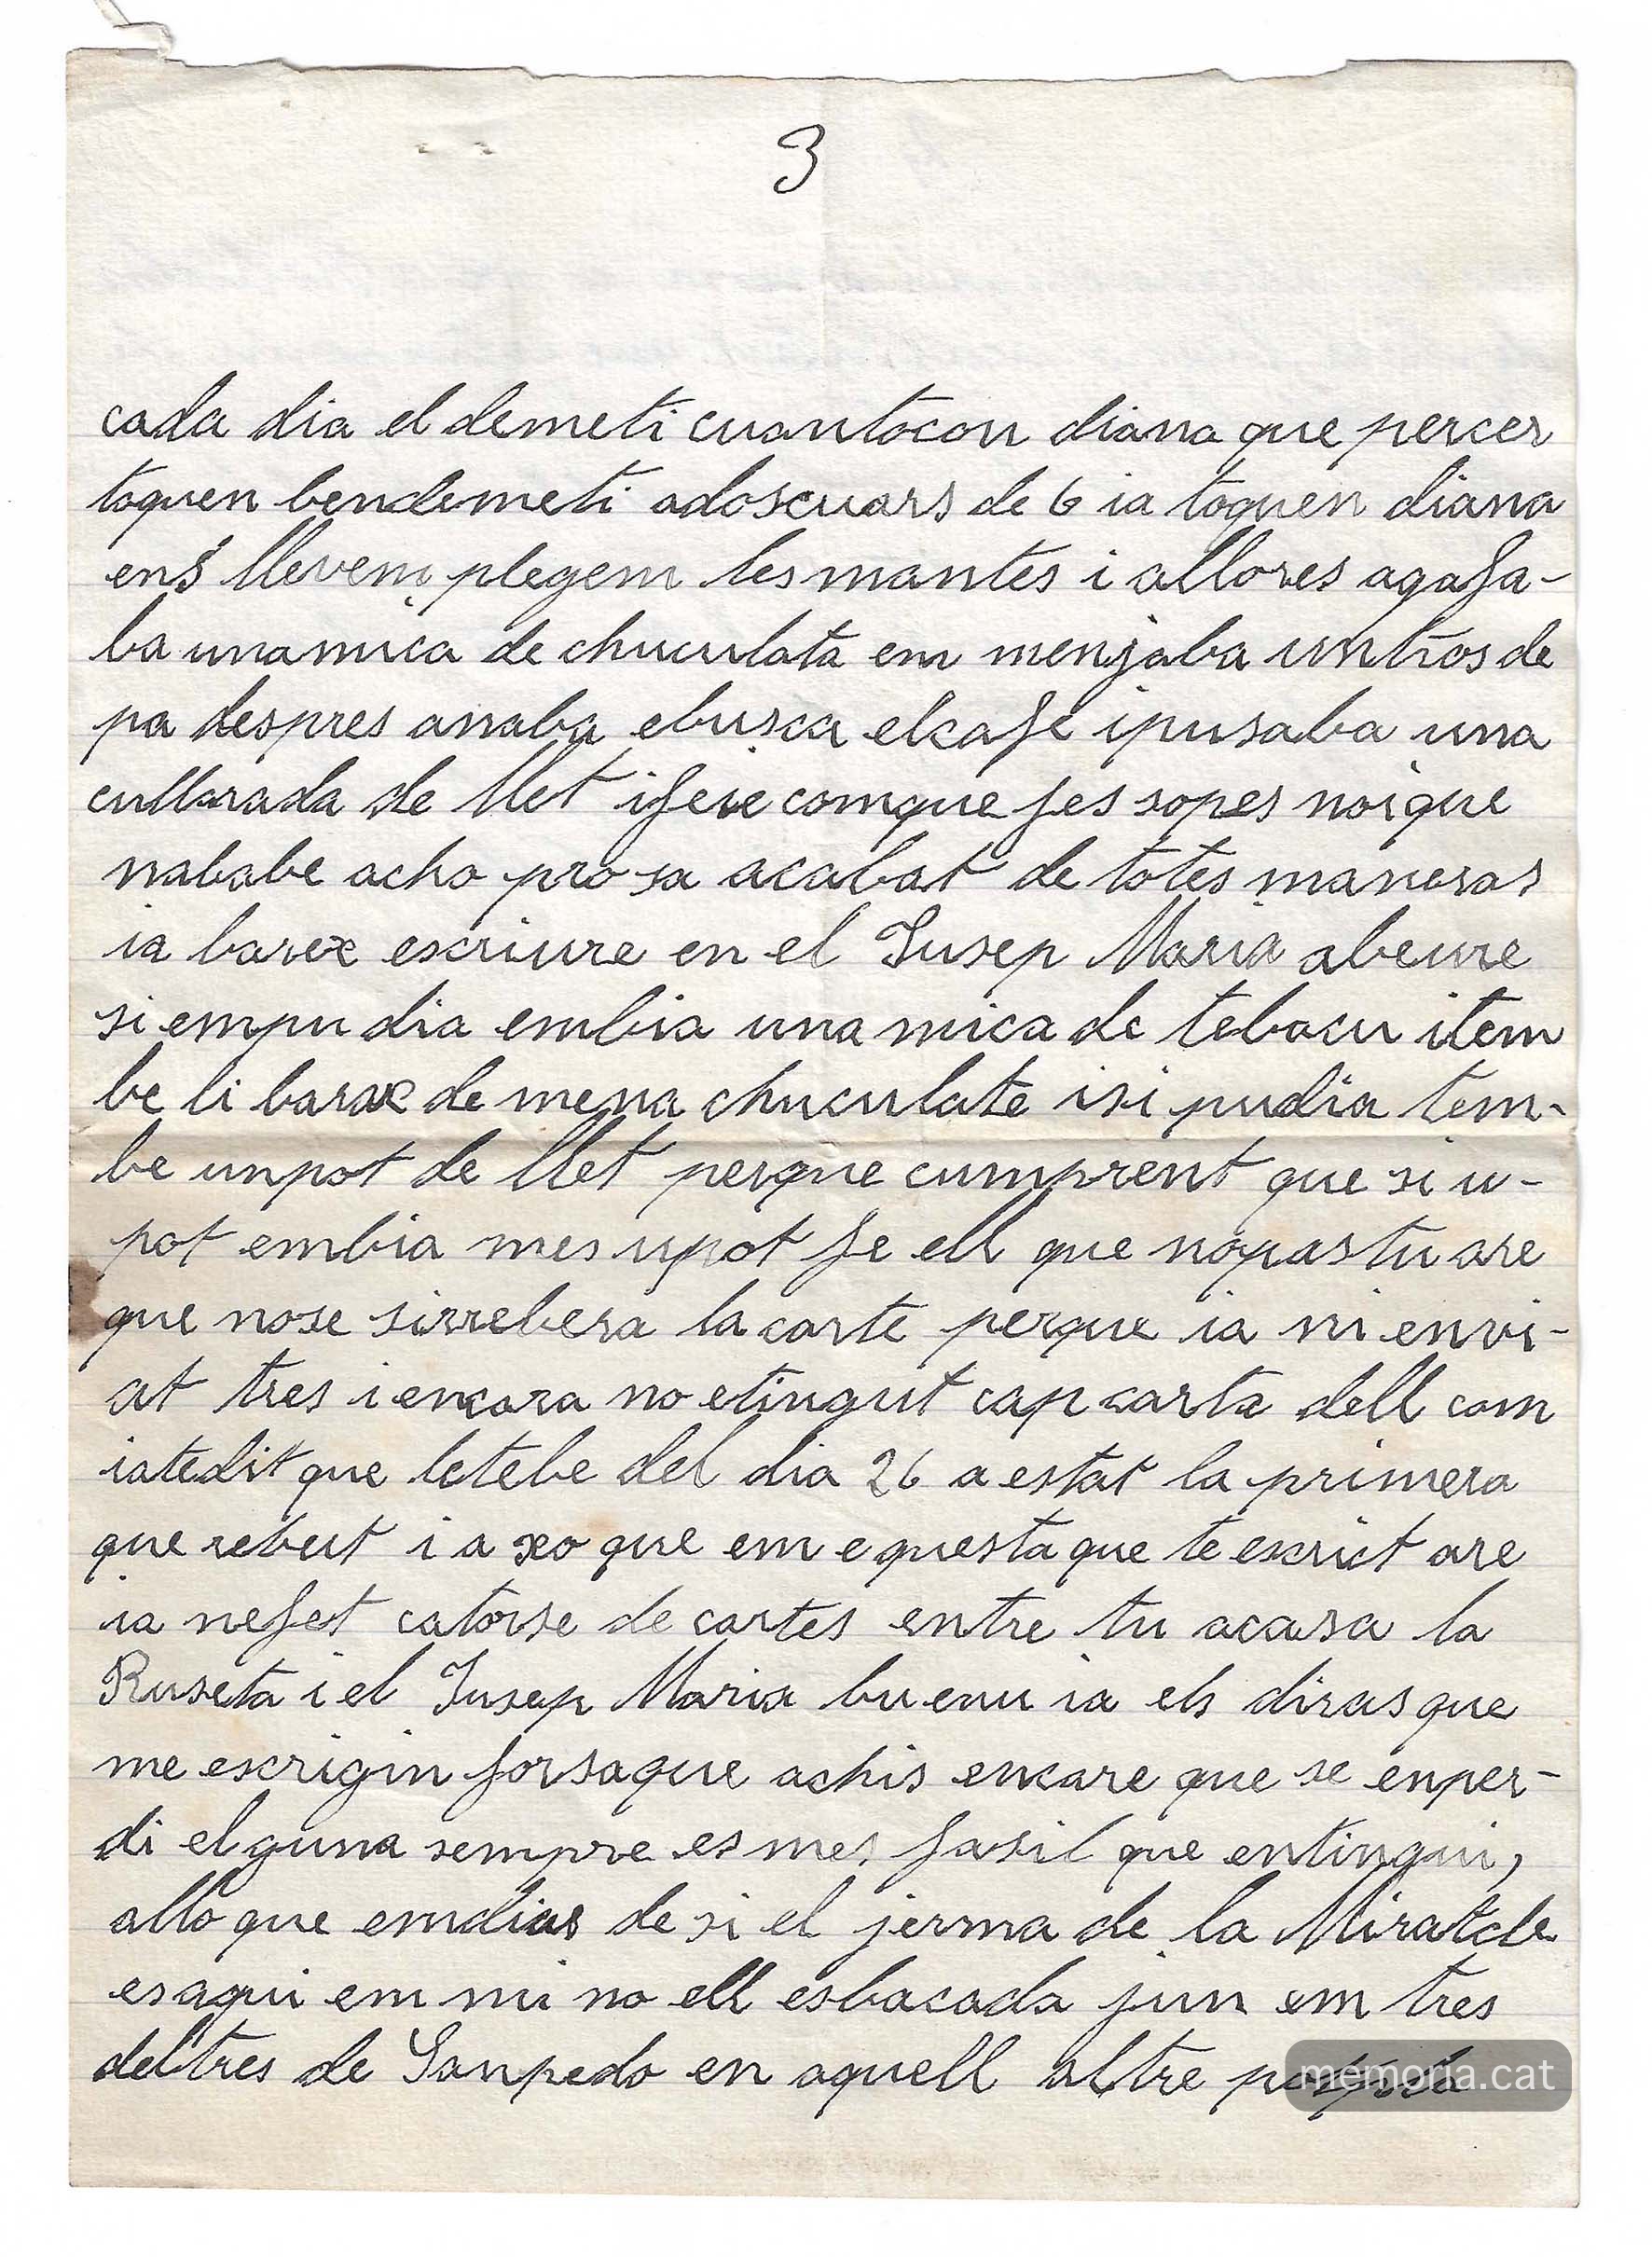 3
cada dia el demeti cuantocon diana que percer
toquen bendemeti adoscuars de 6 ia toquen diana
ens llevem plegem les mantes i allores agafa-
ba unamica de chuculata em menjaba untros de
pa despres anaba ebusca elcafe ipusaba una
cullarada de llet ifeie comque fes sopes noique
nababe acho pro sa acabat de totes maneras
ia barex escriure en el Jusep Maria abeure
si empu dia embia una mica de tebacu item
be li barax de mena chuculate isi pudia tem-
be unpot de llet perque cumprent que si u-
pot embia mes upot fe ell que nopastu are
que nose sirrebera la carte perque ia ni envi-
at tres i encara no etingut cap carta dell com
iatedit que letebe del dia 26 a estat la primera
que rebut i a xo que em equesta que te escrict are
ia nefet catorse de cartes entre tu acasa la
Ruseta i el Jusep Maria bu enu ia els diras que
me escrigin forsaque achis encare que se enper-
di elguna sempre es mes fasil que entingui,
allo que emdius de si el jerma de la Miratde
esaqui em mi no ell esbacada jun em tres
deltres de Sanpedo en aquell altre
memoria.cat